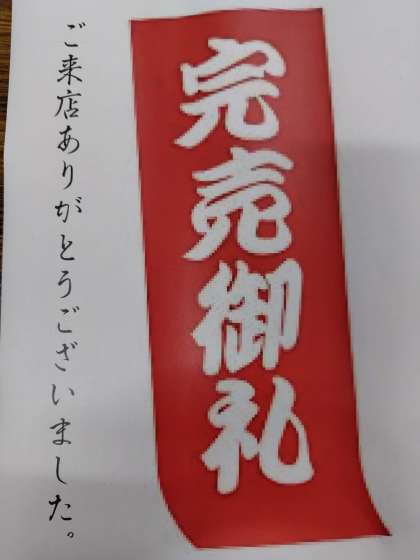 完売御礼
ご来店ありがとうございました。